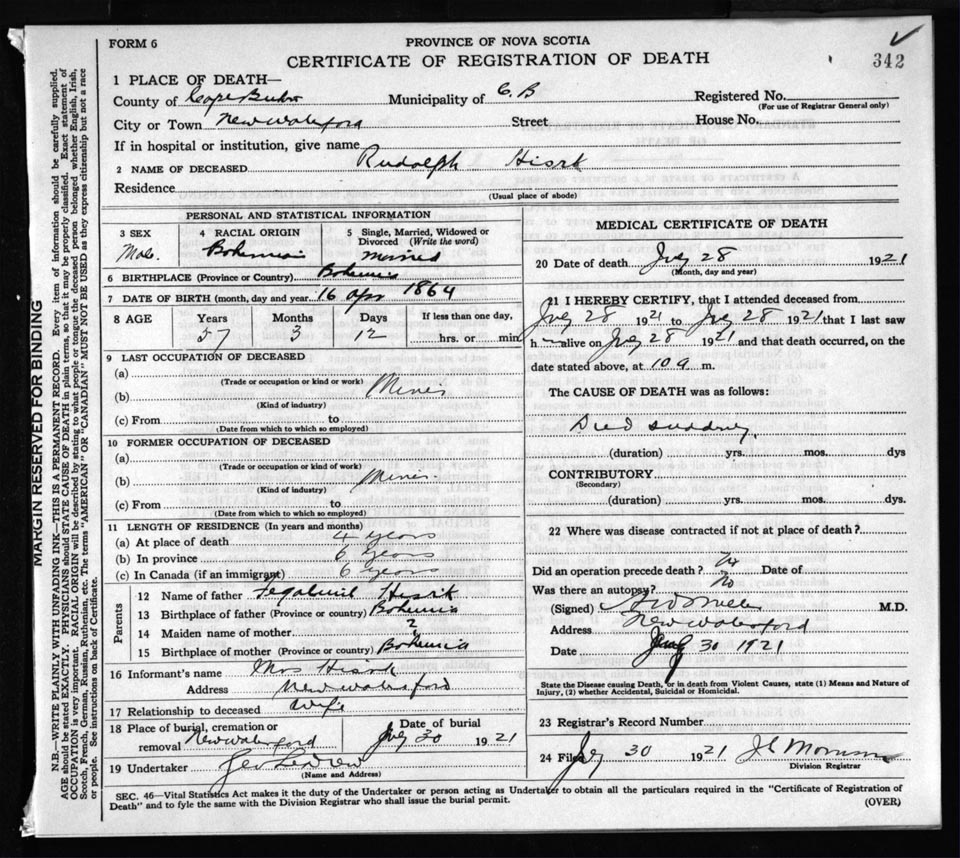 FORM 6
PROVINCE OF NOVA SCOTIA
CERTIFICATE OF REGISTRATION OF DEATH
342
1 PLACE OF DEATH—
County of Cape Breton Municipality of C.B Registered No.
(For use of Registrar General only)
City or Town New Waterford Street House No.
If in hospital or institution, give name
2 NAME OF DECEASED Rudolph Hisrk
Residence
(Usual place of abode)
PERSONAL AND STATISTICAL INFORMATION
3 SEX 4 RACIAL ORIGIN 5 Single, Married, Widowed or Divorced (Write the word)
Male. Bohemian Married
6 BIRTHPLACE (Province or Country) Bohemia
7 DATE OF BIRTH (month, day and year) 16 apr 1864
8 AGE Years Months Days If less than one day,
57 3 12 hrs. or min.
9 LAST OCCUPATION OF DECEASED
(a)
(Trade or occupation or kind or work)
(b) Miner
(Kind of industry)
(c) From to
(Date from which to which so employed)
10 FORMER OCCUPATION OF DECEASED
(a)
(Trade or occupation or kind of work)
(b) Miner.
(Kind of industry)
(c) From to
(Date from which to which so employed)
11 LENGTH OF RESIDENCE (In years and months)
(a) At place of death 4 years
(b) In province 6 years
(c) In Canada (if an immigrant) 6 years
Parents
12 Name of father Hisrk
13 Birthplace of father (Province or country) Bohemia
14 Maiden name of mother ?
15 Birthplace of mother (Province or country) Bohemia
16 Informant's name Mrs Hisrk
Address New Waterford
17 Relationship to deceased Wife
18 Place of burial, cremation or removal New Waterford Date of burial July 30 1921
19 Undertaker Geo
(Name and Address)
MEDICAL CERTIFICATE OF DEATH
20 Date of death July 28 1921
(Month, day and year)
21 I HEREBY CERTIFY, that I attended deceased from
July 28 1921 to July 28 1921 that I last saw
h alive on July 28 1921 and that death occurred, on the
date stated above, at 10 a m.
The CAUSE OF DEATH was as follows:
Died suddenly
(duration) yrs. mos. dys
CONTRIBUTORY
(Secondary)
(duration) yrs. mos. dys.
22 Where was disease contracted if not at place of death?
Did an operation precede death? No Date of
Was there an autopsy? No
(Signed) M.D.
Address New Waterford
Date July 30 1921
State the Disease causing Death, or in death from Violent Causes, state (1) Means and Nature of
Injury, (2) whether Accidental, Suicidal or Homicidal.
23 Registrar's Record Number
24 Filed July 30 1921 J C Morrison
Division Registrar
SEC. 46—Vital Statistics Act makes it the duty of the Undertaker or person acting as Undertaker to obtain all the particulars required in the "Certificate of Registration of
Death" and to fyle the same with the Division Registrar who shall issue the burial permit. (OVER)
MARGIN RESERVED FOR BINDING
N.B.—WRITE PLAINLY WITH UNFADING INK—THIS IS A PERMANENT RECORD. Every item of information should be carefully supplied.
AGE should be stated EXACTLY. PHYSICIANS should STATE CAUSE OF DEATH in plain terms, so that it may be properly classified. Exact statement of
OCCUPATION is very important. RACIAL ORIGIN will be described by stating to what people or tongue the deceased person belonged whether English, Irish,
Scotch, French, German, Russian, Ruthenian, etc. The terms "AMERICAN" OR "CANADIAN" MUST NOT BE USED as they express citizenship but not a race
or people. See instructions on back of Certificate.